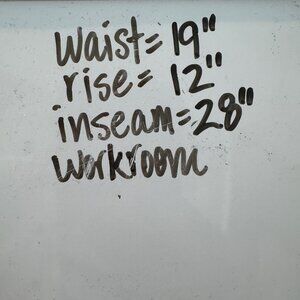 waist= 19"
rise= 12"
inseam=28"
workroom